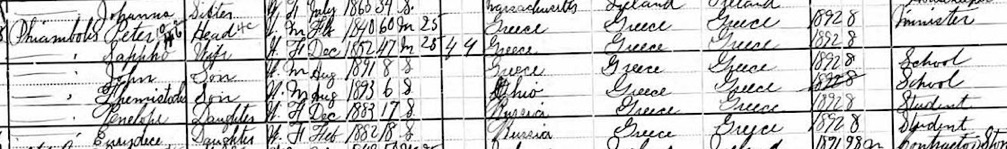 Johanna Sister W F July 1860 39 S Massachusetts Ireland Ireland
Phiambolis Peter Head W M Feb 1840 60 M 25 Greece Greece Greece 1892 8 Minister
— Sappho Wife W F Dec 1852 47 M 25 4 4 Greece Greece Greece 1892 8
— John Son W M Aug 1891 8 S Greece Greece Greece 1892 8 School
— Themistocles Son W M Aug 1893 6 S Ohio Greece Greece School
— Penelope Daughter W F Dec 1883 17 S Russia Greece Greece 1892 8 Student
— Eurydice Daughter W F Feb 1882 18 S Russia Greece Greece 1892 8 Student
1891 9 Contractor